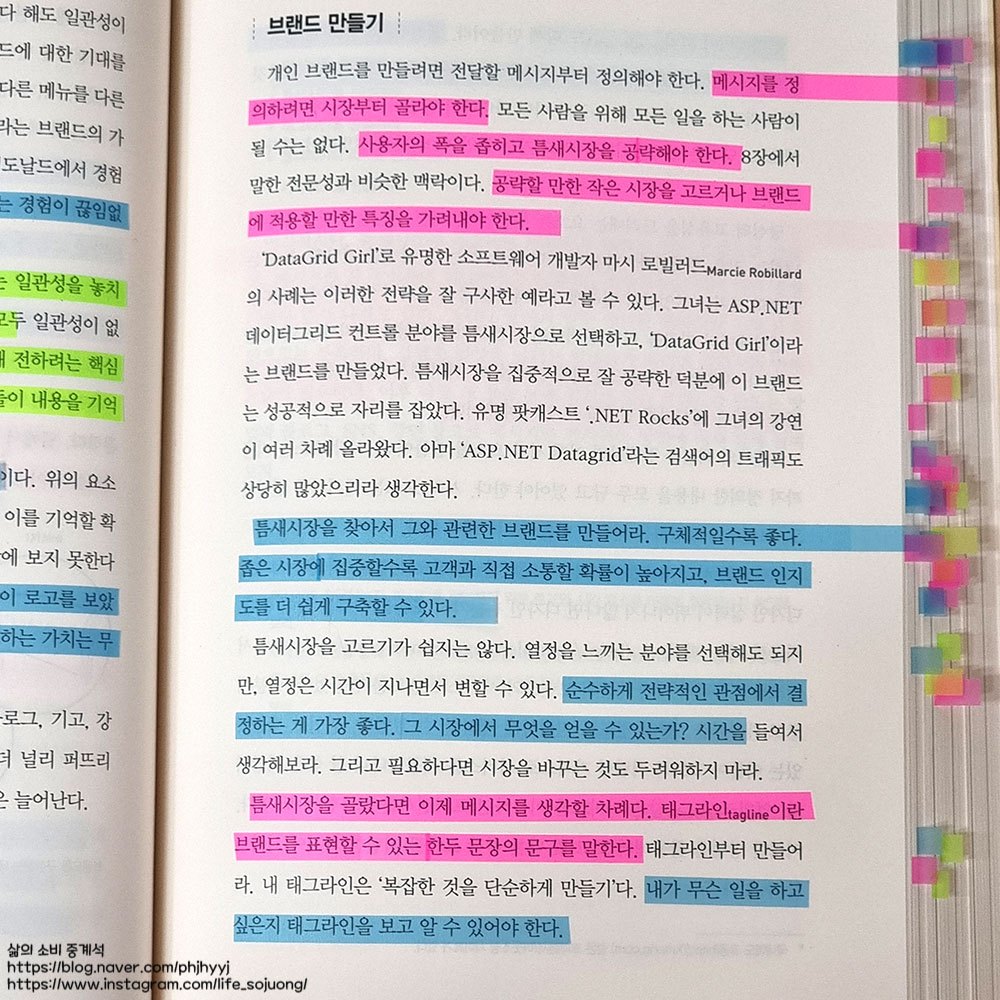 다 해도 일관성이
드에 대한 기대를
다른 메뉴를 다른
라는 브랜드의 가
도날드에서 경험
는 경험이 끊임없
는 일관성을 놓치
모두 일관성이 없
전하려는 핵심
들이 내용을 기억
이다. 위의 요소
이를 기억할 확
에 보지 못한다
이 로고를 보았
하는 가치는 무
로그, 기고, 강
더 널리 퍼뜨리
은 늘어난다.
브랜드 만들기
개인 브랜드를 만들려면 전달할 메시지부터 정의해야 한다. 메시지를 정
의하려면 시장부터 골라야 한다. 모든 사람을 위해 모든 일을 하는 사람이
될 수는 없다. 사용자의 폭을 좁히고 틈새시장을 공략해야 한다. 8장에서
말한 전문성과 비슷한 맥락이다. 공략할 만한 작은 시장을 고르거나 브랜드
에 적용할 만한 특징을 가려내야 한다.
'DataGrid Girl'로 유명한 소프트웨어 개발자 마시 로빌러드Marcie Robillard
의 사례는 이러한 전략을 잘 구사한 예라고 볼 수 있다. 그녀는 ASP.NET
데이터그리드 컨트롤 분야를 틈새시장으로 선택하고, 'DataGrid Girl'이라
는 브랜드를 만들었다. 틈새시장을 집중적으로 잘 공략한 덕분에 이 브랜드
는 성공적으로 자리를 잡았다. 유명 팟캐스트 '.NET Rocks'에 그녀의 강연
이 여러 차례 올라왔다. 아마 'ASP.NET Datagrid'라는 검색어의 트래픽도
상당히 많았으리라 생각한다.
틈새시장을 찾아서 그와 관련한 브랜드를 만들어라. 구체적일수록 좋다.
좁은 시장에 집중할수록 고객과 직접 소통할 확률이 높아지고, 브랜드 인지
도를 더 쉽게 구축할 수 있다.
틈새시장을 고르기가 쉽지는 않다. 열정을 느끼는 분야를 선택해도 되지
만, 열정은 시간이 지나면서 변할 수 있다. 순수하게 전략적인 관점에서 결
정하는 게 가장 좋다. 그 시장에서 무엇을 얻을 수 있는가? 시간을 들여서
생각해보라. 그리고 필요하다면 시장을 바꾸는 것도 두려워하지 마라.
틈새시장을 골랐다면 이제 메시지를 생각할 차례다. 태그라인tagline이란
브랜드를 표현할 수 있는 한두 문장의 문구를 말한다. 태그라인부터 만들어
라. 내 태그라인은 '복잡한 것을 단순하게 만들기'다. 내가 무슨 일을 하고
싶은지 태그라인을 보고 알 수 있어야 한다.
삶의 소비 중계석
https://blog.naver.com/phjhyyj
https://www.instagram.com/life_sojuong/